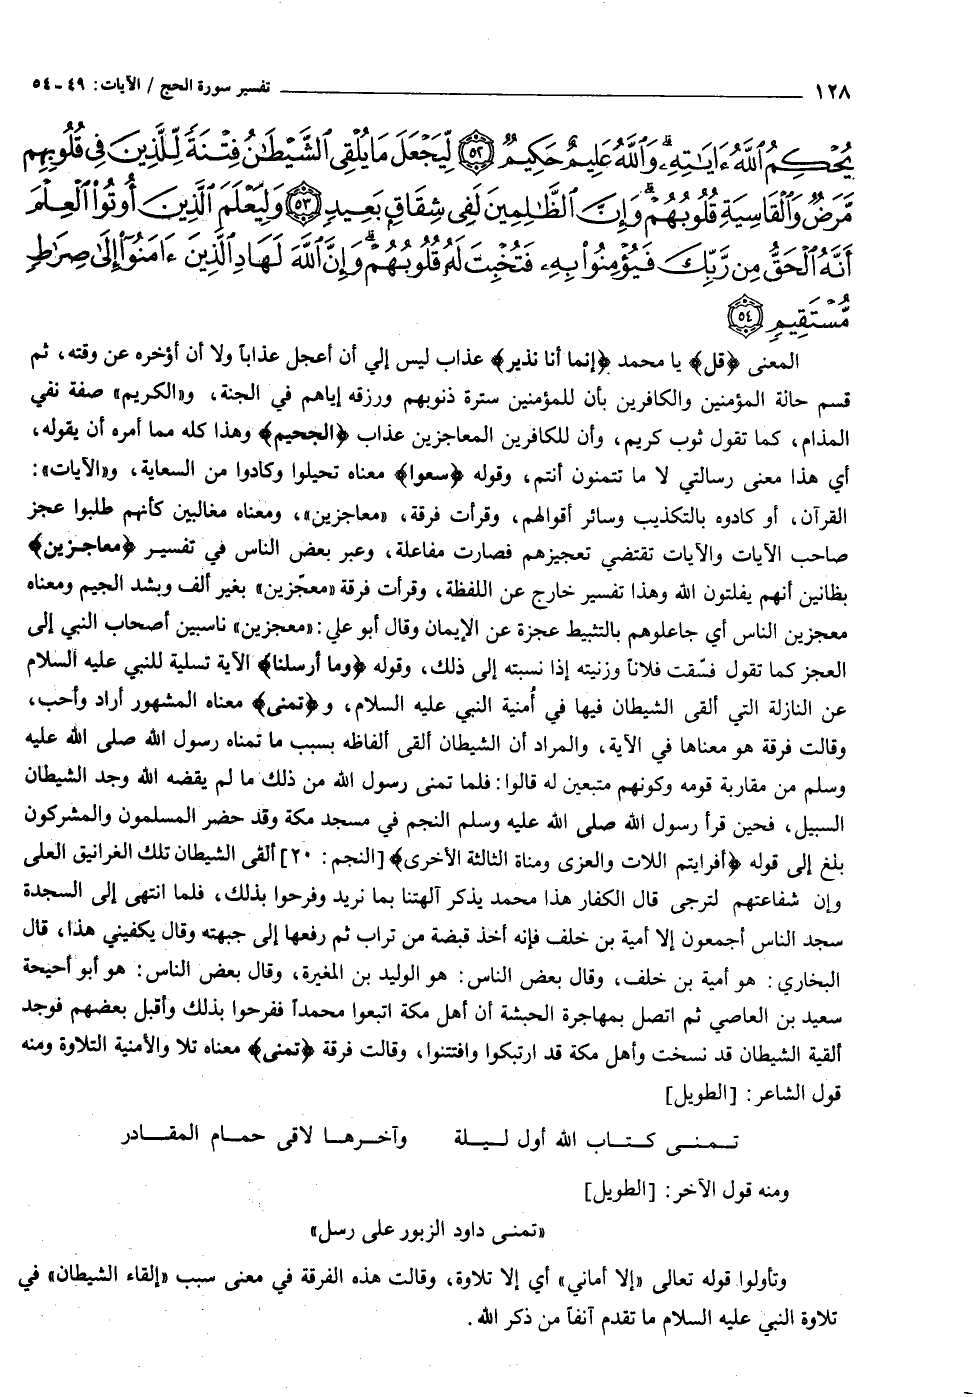 ١٢٨ ــــــــ تفسير سورة الحج / الآيات: ٤٩ ـ ٥٤
يُحْكِمُ ٱللَّهُ ءَايَـٰتِهِۦ ۗ وَٱللَّهُ عَلِيمٌ حَكِيمٌ ٥٢ لِّيَجْعَلَ مَا يُلْقِى ٱلشَّيْطَـٰنُ فِتْنَةً لِّلَّذِينَ فِى قُلُوبِهِم
مَّرَضٌ وَٱلْقَاسِيَةِ قُلُوبُهُمْ ۗ وَإِنَّ ٱلظَّـٰلِمِينَ لَفِى شِقَاقٍۭ بَعِيدٍ ٥٣ وَلِيَعْلَمَ ٱلَّذِينَ أُوتُوا۟ ٱلْعِلْمَ
أَنَّهُ ٱلْحَقُّ مِن رَّبِّكَ فَيُؤْمِنُوا۟ بِهِۦ فَتُخْبِتَ لَهُۥ قُلُوبُهُمْ ۗ وَإِنَّ ٱللَّهَ لَهَادِ ٱلَّذِينَ ءَامَنُوٓا۟ إِلَىٰ صِرَٰطٍ
مُّسْتَقِيمٍ ٥٤
المعنى ﴿قل﴾ يا محمد ﴿إنما أنا نذير﴾ عذاب ليس إلي أن أعجل عذاباً ولا أن أؤخره عن وقته، ثم
قسم حالة المؤمنين والكافرين بأن للمؤمنين سترة ذنوبهم ورزقه إياهم في الجنة، و«الكريم» صفة نفي
المذام، كما تقول ثوب كريم، وأن للكافرين المعاجزين عذاب ﴿الجحيم﴾ وهذا كله مما أمره أن يقوله،
أي هذا معنى رسالتي لا ما تتمنون أنتم، وقوله ﴿سعوا﴾ معناه تحيلوا وكادوا من السعاية، و«الآيات»:
القرآن، أو كادوه بالتكذيب وسائر أقوالهم، وقرأت فرقة، «معاجزين»، ومعناه مغالبين كأنهم طلبوا عجز
صاحب الآيات والآيات تقتضي تعجيزهم فصارت مفاعلة، وعبر بعض الناس في تفسير ﴿معاجزين﴾
بظانين أنهم يفلتون الله وهذا تفسير خارج عن اللفظة، وقرأت فرقة «معجّزين» بغير ألف وبشد الجيم ومعناه
معجزين الناس أي جاعلوهم بالتثبيط عجزة عن الإيمان وقال أبو علي: «معجزين» ناسبين أصحاب النبي إلى
العجز كما تقول فسّقت فلاناً وزنيته إذا نسبته إلى ذلك، وقوله ﴿وما أرسلنا﴾ الآية تسلية للنبي عليه السلام
عن النازلة التي ألقى الشيطان فيها في أمنية النبي عليه السلام، و﴿تمنى﴾ معناه المشهور أراد وأحب،
وقالت فرقة هو معناها في الآية، والمراد أن الشيطان ألقى ألفاظه بسبب ما تمناه رسول الله صلى الله عليه
وسلم من مقاربة قومه وكونهم متبعين له قالوا: فلما تمنى رسول الله من ذلك ما لم يقضه الله وجد الشيطان
السبيل، فحين قرأ رسول الله صلى الله عليه وسلم النجم في مسجد مكة وقد حضر المسلمون والمشركون
بلغ إلى قوله ﴿أفرايتم اللات والعزى ومناة الثالثة الأخرى﴾ [النجم: ٢٠] ألقى الشيطان تلك الغرانيق العلى
وإن شفاعتهم لترجى قال الكفار هذا محمد يذكر آلهتنا بما نريد وفرحوا بذلك، فلما انتهى إلى السجدة
سجد الناس أجمعون إلا أمية بن خلف فإنه أخذ قبضة من تراب ثم رفعها إلى جبهته وقال يكفيني هذا، قال
البخاري: هو أمية بن خلف، وقال بعض الناس: هو الوليد بن المغيرة، وقال بعض الناس: هو أبو أحيحة
سعيد بن العاصي ثم اتصل بمهاجرة الحبشة أن أهل مكة اتبعوا محمداً ففرحوا بذلك وأقبل بعضهم فوجد
ألقية الشيطان قد نسخت وأهل مكة قد ارتبكوا وافتتنوا، وقالت فرقة ﴿تمنى﴾ معناه تلا والأمنية التلاوة ومنه
قول الشاعر: [الطويل]
تـمـنـى كـتـاب الله أول ليـلـة وآخـرهـا لاقى حمام المقـادر
ومنه قول الآخر: [الطويل]
«تمنى داود الزبور على رسل»
وتأولوا قوله تعالى «إلا أماني» أي إلا تلاوة، وقالت هذه الفرقة في معنى سبب «إلقاء الشيطان» في
تلاوة النبي عليه السلام ما تقدم آنفاً من ذكر الله.